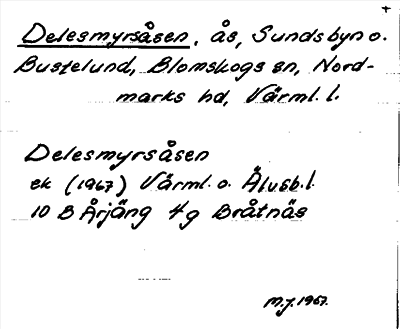 +
Delesmyrsåsen, ås, Sundsbyn o.
Bustelund, Blomskogs sn, Nord-
marks hd, Värml. l.
Delesmyrsåsen
ek (1967) Värml. o. Älvsb. l.
10 B Årjäng 4g Bråtnäs
M.J. 1967.